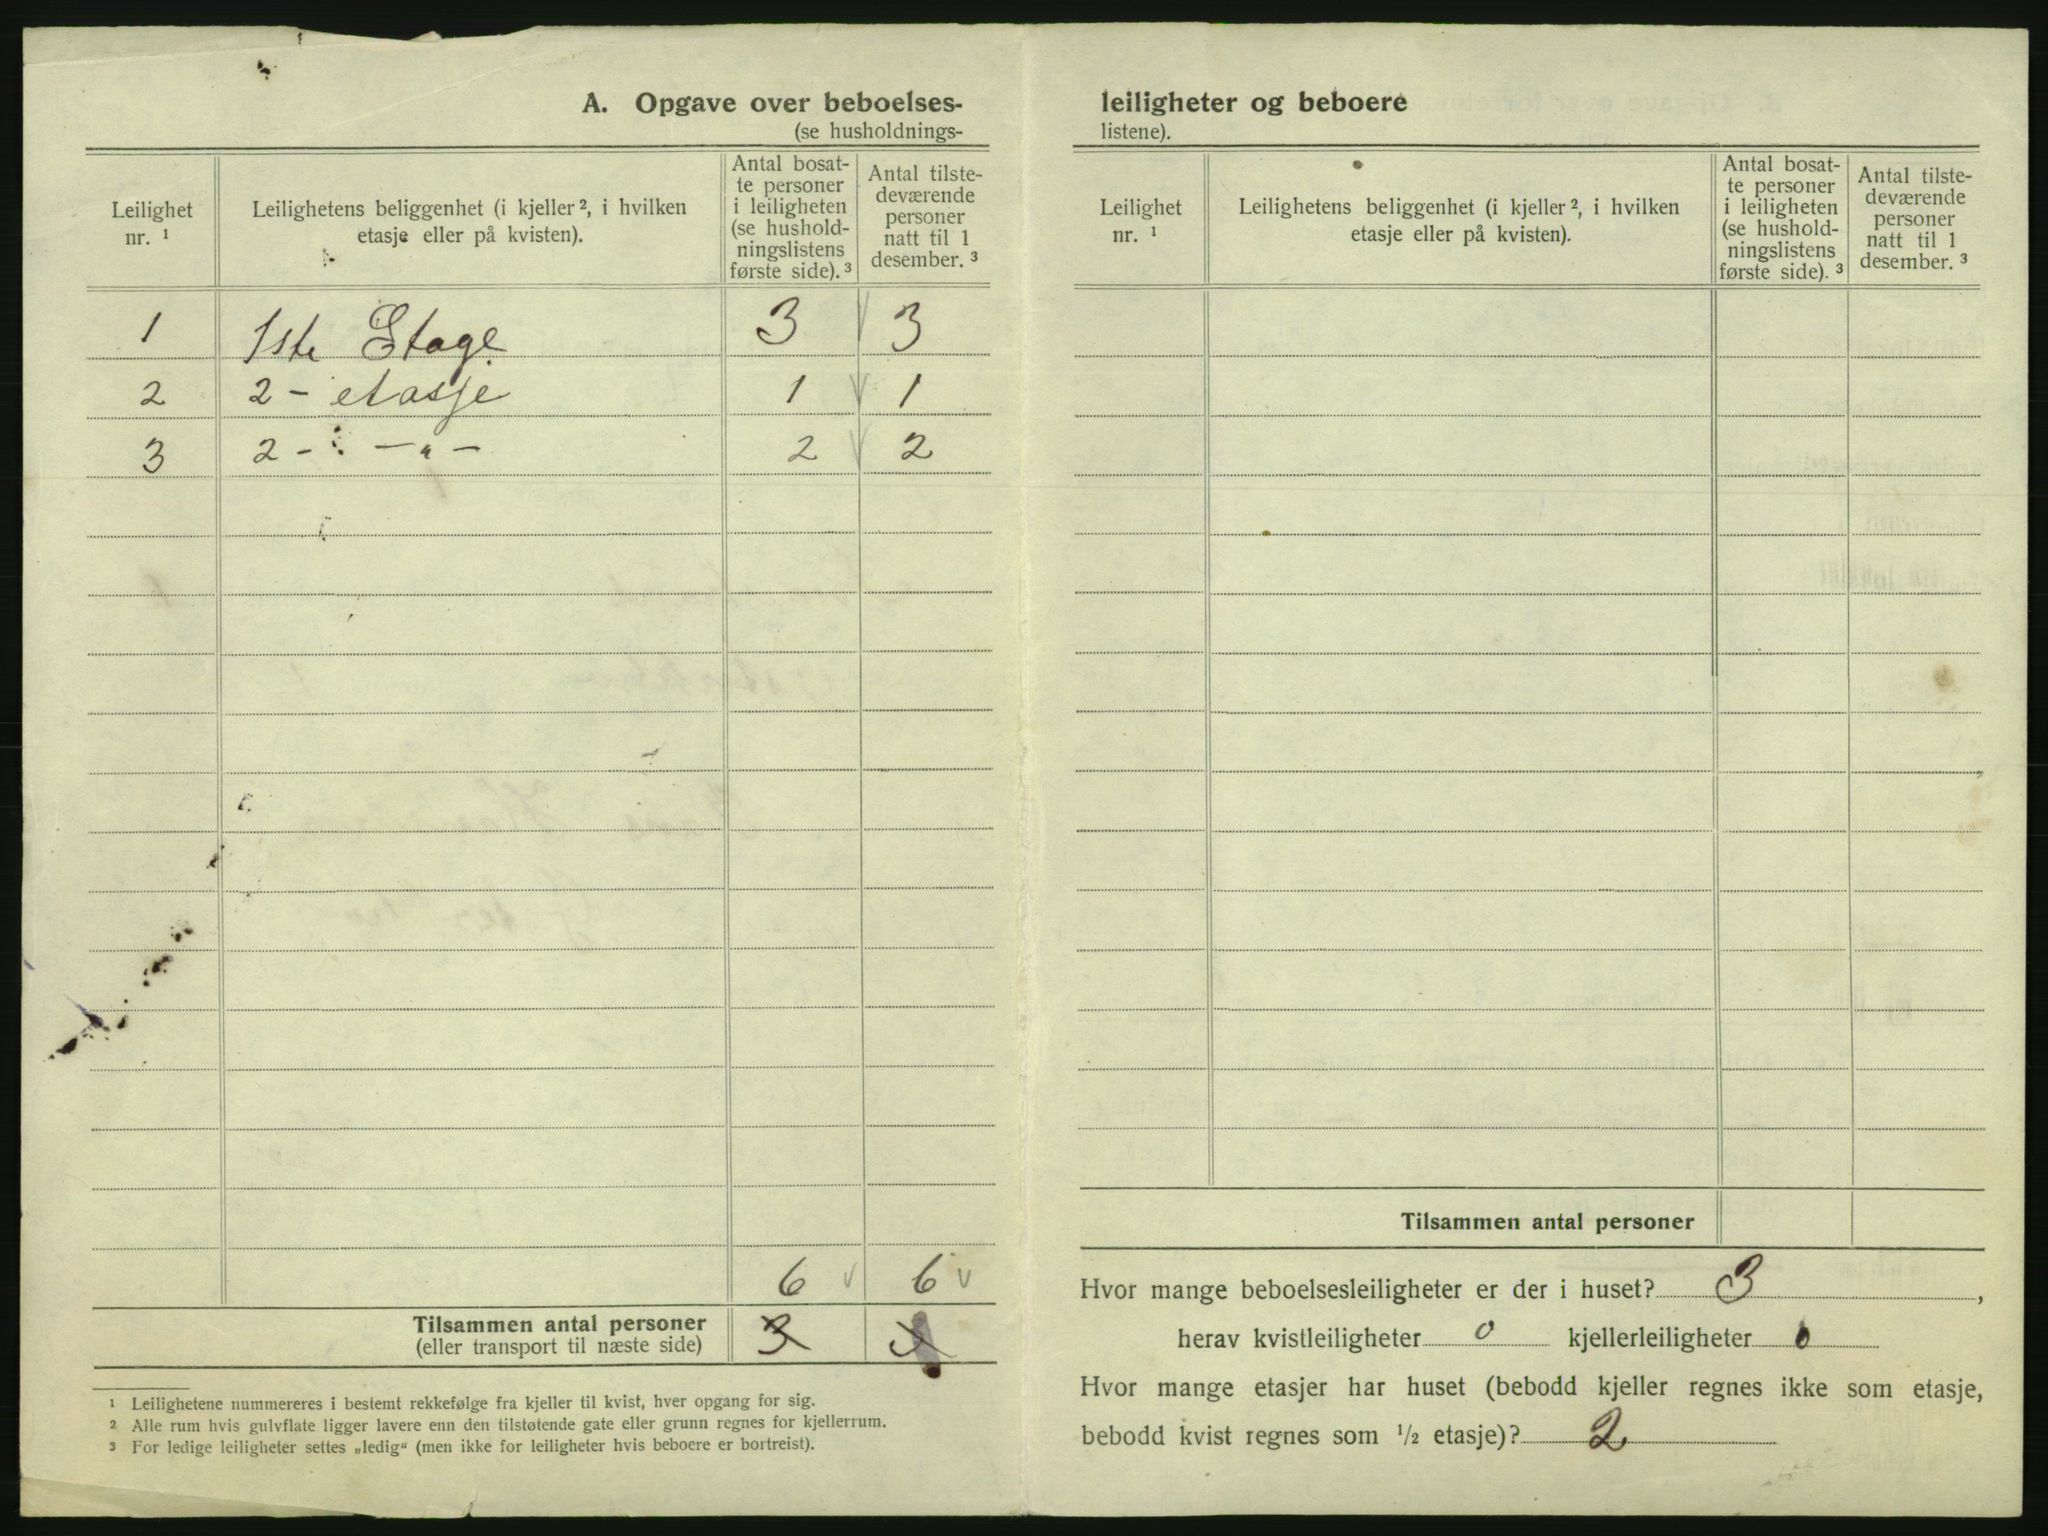 A. Opgave over beboelses-
(se husholdnings-
Leilighet nr. ¹
Leilighetens beliggenhet (i kjeller ², i hvilken etasje eller på kvisten).
Antal bosat-
te personer
i leiligheten
(se hushold-
ningslistens
første side). ³
Antal tilste-
deværende
personer
natt til 1
desember. ³
1 1ste Etage 3 3
2 2 - etasje 1 1
3 2 - — „ — 2 2
6 6
Tilsammen antal personer 3
(eller transport til næste side)
¹ Leilighetene nummereres i bestemt rekkefølge fra kjeller til kvist, hver opgang for sig.
² Alle rum hvis gulvflate ligger lavere enn den tilstøtende gate eller grunn regnes for kjellerrum.
³ For ledige leiligheter settes „ledig“ (men ikke for leiligheter hvis beboere er bortreist).
leiligheter og beboere
listene).
Leilighet
nr. ¹
Leilighetens beliggenhet (i kjeller ², i hvilken
etasje eller på kvisten).
Antal bosat-
te personer
i leiligheten
(se hushold-
ningslistens
første side). ³
Antal tilste-
deværende
personer
natt til 1
desember. ³
Tilsammen antal personer
Hvor mange beboelsesleiligheter er der i huset? 3,
herav kvistleiligheter 0 kjellerleiligheter 0
Hvor mange etasjer har huset (bebodd kjeller regnes ikke som etasje,
bebodd kvist regnes som ½ etasje)? 2